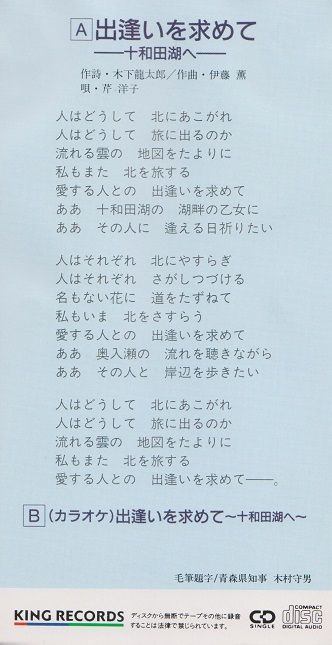 A 出逢いを求めて
――十和田湖へ――
作詩・木下龍太郎／作曲・伊藤 薫
唄・芹 洋子
人はどうして　北にあこがれ
人はどうして　旅に出るのか
流れる雲の　地図をたよりに
私もまた　北を旅する
愛する人との　出逢いを求めて
ああ　十和田湖の　湖畔の乙女に
ああ　その人に　逢える日祈りたい
人はそれぞれ　北にやすらぎ
人はそれぞれ　さがしつづける
名もない花に　道をたずねて
私もいま　北をさすらう
愛する人との　出逢いを求めて
ああ　奥入瀬の　流れを聴きながら
ああ　その人と　岸辺を歩きたい
人はどうして　北にあこがれ
人はどうして　旅に出るのか
流れる雲の　地図をたよりに
私もまた　北を旅する
愛する人との　出逢いを求めて――。
B (カラオケ)出逢いを求めて～十和田湖へ～
毛筆題字/青森県知事 木村守男
KING RECORDS
ディスクから無断でテープその他に録音
することは法律で禁じられています。
CD SINGLE
COMPACT disc DIGITAL AUDIO